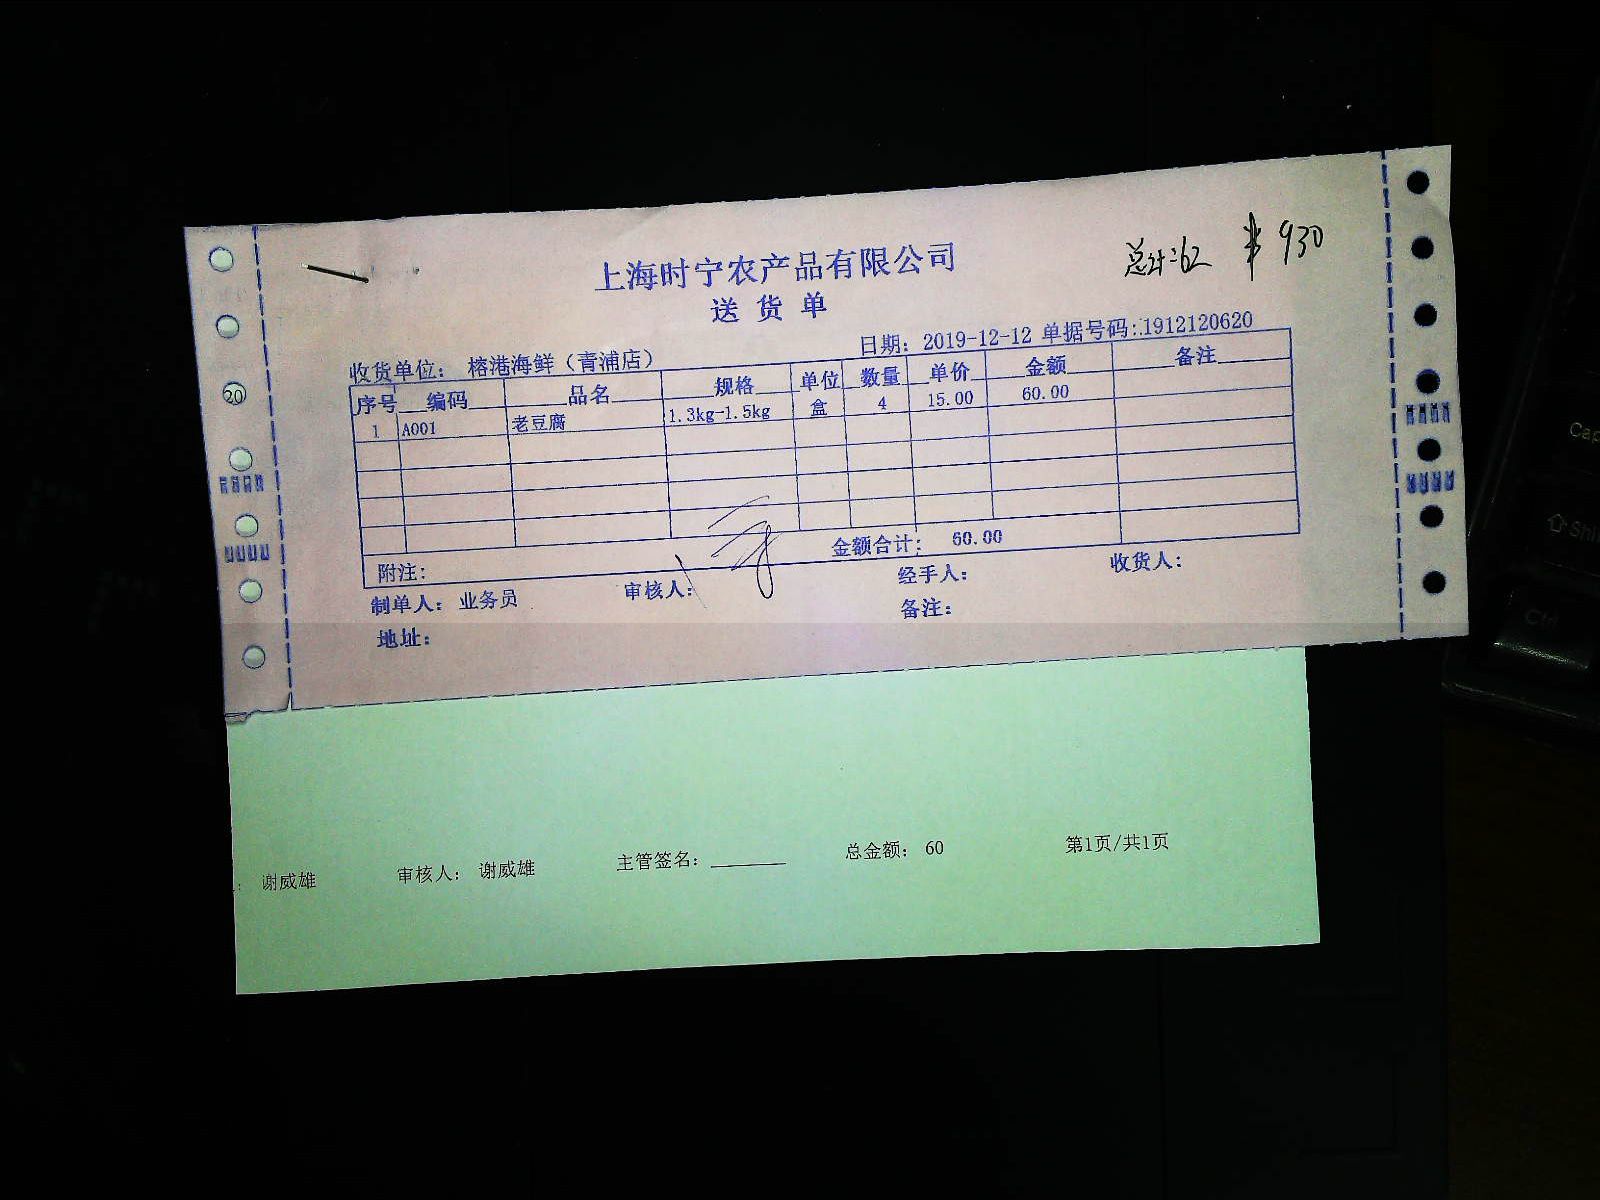 上海时宁农产品有限公司
总计:62 ¥930
送货单
收货单位: 榕港海鲜(青浦店) 日期: 2019-12-12 单据号码:1912120620
序号 编码 品名 规格 单位 数量 单价 金额 备注
1 A001 老豆腐 1.3kg-1.5kg 盒 4 15.00 60.00
附注: 金额合计: 60.00
制单人: 业务员 审核人: 经手人: 收货人:
地址: 备注:
20
: 谢威雄 审核人: 谢威雄 主管签名: 总金额: 60 第1页/共1页
Shi
Ctrl